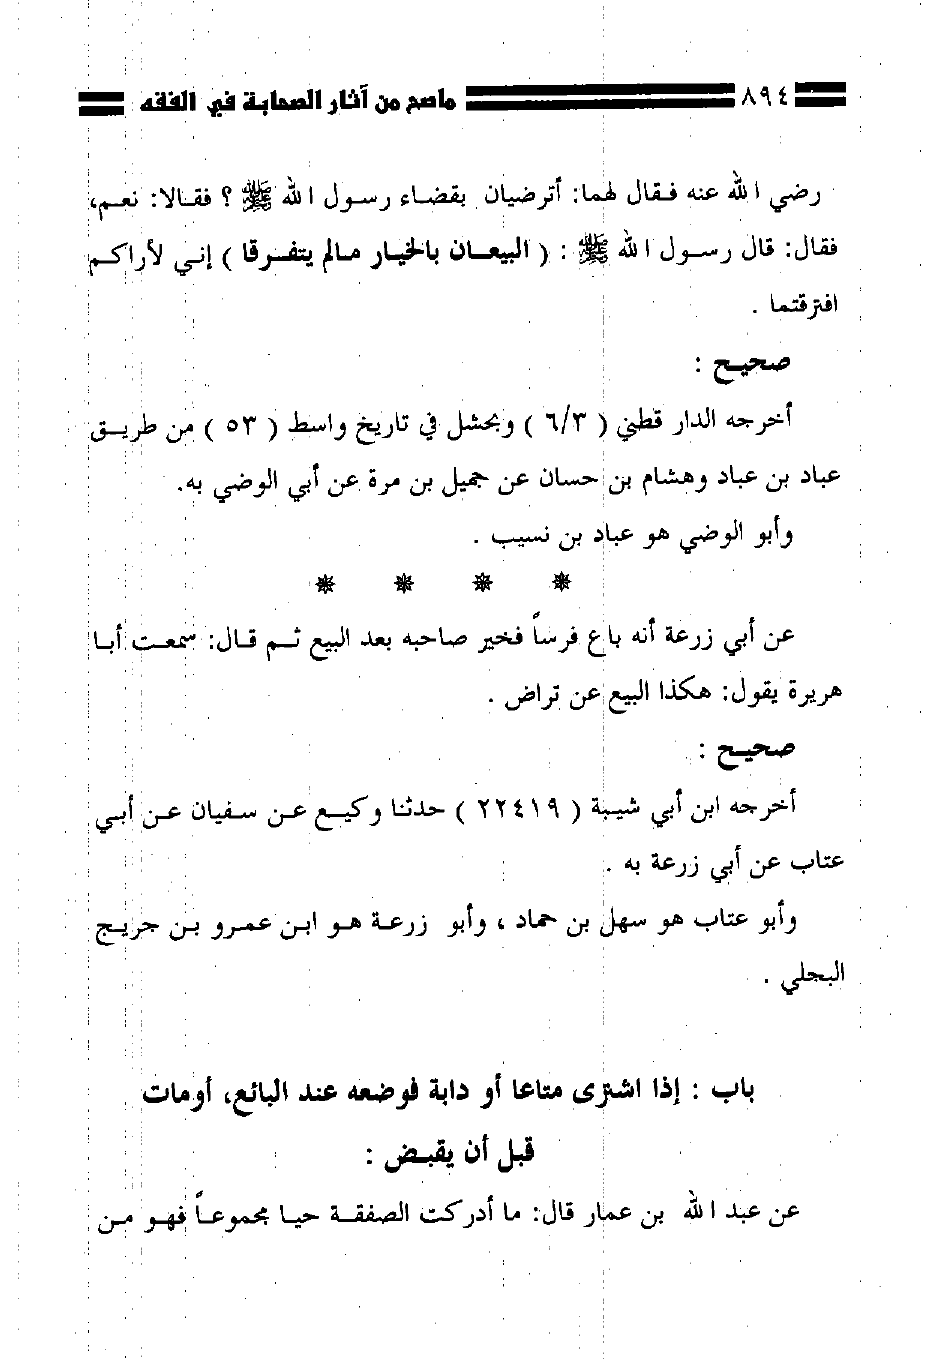 ٨٩٤ ماصح من آثار الصحابة في الفقه
رضي الله عنه فقال لهما: أترضيان بقضاء رسول الله ﷺ ؟ فقالا: نعم،
فقال: قال رسول الله ﷺ : ( البيعان بالخيار مالم يتفرقا ) إني لأراكم
افترقتما .
صحيح :
أخرجه الدار قطني ( ٦/٣ ) وبحشل في تاريخ واسط ( ٥٣ ) من طريق
عباد بن عباد وهشام بن حسان عن جميل بن مرة عن أبي الوضي به.
وأبو الوضي هو عباد بن نسيب .
❋ ❋ ❋ ❋
عن أبي زرعة أنه باع فرساً فخير صاحبه بعد البيع ثم قال: سمعت أبا
هريرة يقول: هكذا البيع عن تراض .
صحيح :
أخرجه ابن أبي شيبة ( ٢٢٤١٩ ) حدثنا وكيع عن سفيان عن أبي
عتاب عن أبي زرعة به .
وأبو عتاب هو سهل بن حماد ، وأبو زرعة هو ابن عمرو بن جريج
البجلي .
باب : إذا اشترى متاعا أو دابة فوضعه عند البائع، أومات
قبل أن يقبض :
عن عبد الله بن عمار قال: ما أدركت الصفقة حيا مجموعاً فهو من